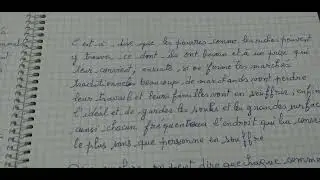 c'est à dire que les pauvres comme les riches peuvent
y trouver ce dont ils ont besoin et à un prix qui
leur convient, ensuite si on ferme les marchés
traditionnels beaucoup de marchands vont perdre
leur travail et leurs familles vont en souffrir, enfin
l'idéal et de garder les souks et les grandes surfaces
ainsi chacun fréquentera l'endroit qui lui convient
le plus sans que personne en souffre
dire que chaque